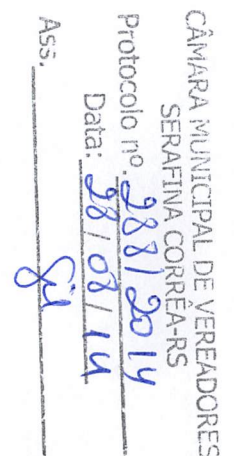 CÂMARA MUNICIPAL DE VEREADORES
SERAFINA CORRÊA-RS
Protocolo nº. 288/2014
Data: 28/08/14
Ass.